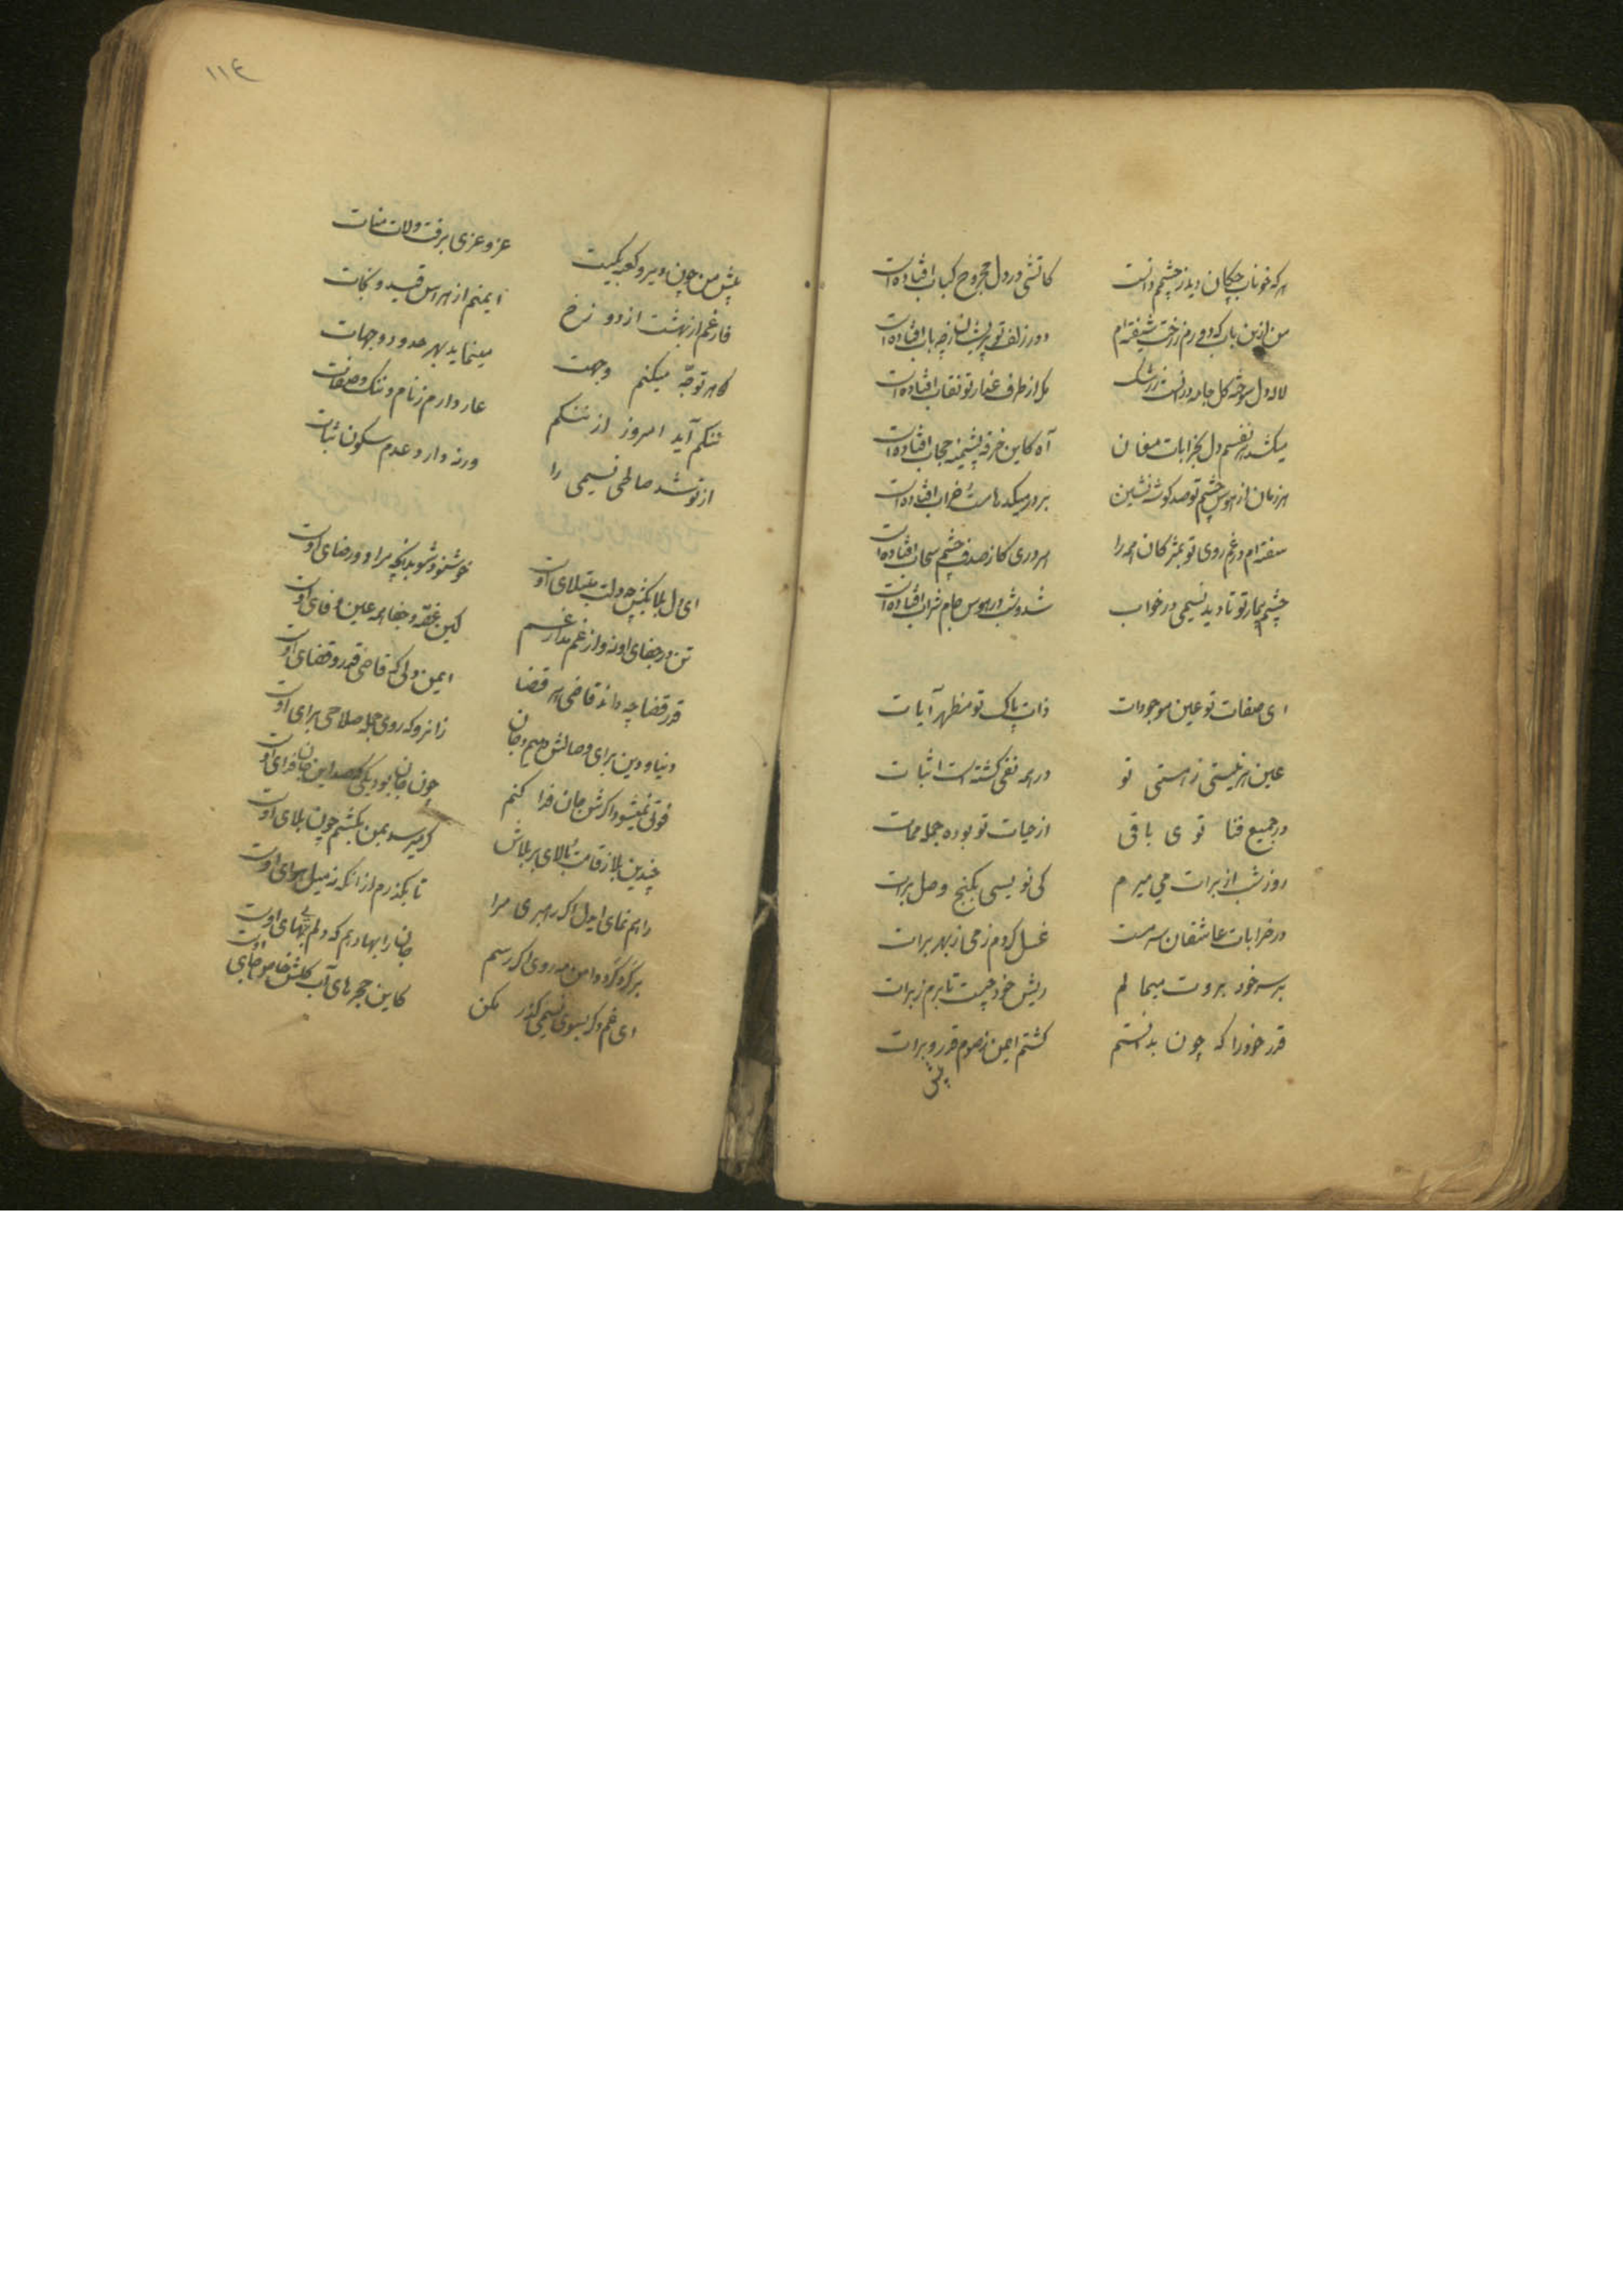 هر که خوناب چکان دید ز چشمم دانست کاتشی در دل مجروح کباب افتاده است
من ازین باب که دورم ز رخت شیفته‌ام دور زلف تو پریشان ز چه باب افتاده است
لاله دل سوخته گل جامه دریدست ز رشک مگر از طرف عذار تو نقاب افتاده است
میکشد هر نفسم دل بخرابات مغان آه کاین خرقه پشمینه حجاب افتاده است
هر زمان از هوس چشم تو صد گوشه نشین بر در میکده‌ها مست و خراب افتاده است
سفته‌ام در غم روی تو بمژگان همه را هر دری کز صدف چشم سحاب افتاده است
چشم بیمار تو تا دید نسیمی در خواب شد و شب در هوس جام شراب افتاده است
ای صفات تو عین موجودات ذات پاک تو مظهر آیات
عین هر نیستی ز هستی تو در همه نفی گشته است اثبات
در جمیع فنا توی باقی از حیات تو بوده جمله ممات
روز شب از برات می میرم کی نویسی بگنج وصل برات
در خرابات عاشقان سرمست غسل کردم ز می ز بهر برات
بر سر خود بروت میمالم ریش خود چیست تا برم ز برات
قدر خود را که چون بدانستم گشتم ایمن ز صوم قدر و برات
پیش
۱۱۴
پیش من چون دیر و کعبه یکیست عز و عزی برفت و لات منات
فارغم از بهشت از دوزخ ایمنم از هراس قید و نجات
کاهر توجه میکنم وجهت مینماید بهر حدود و جهات
ننگم آید امروز از ننگم عار دارم ز نام و ننک و صفات
از تو شد صاطی نسیمی را ورنه دارد عدم سکون ثبات
ای دل بلا بکش چو دلت مبتلای اوست خوشنود شو بدانچه مراد و رضای اوست
تن در جفای او نه و از غم مدار غم کین غصه و جفا همه عین وفای اوست
قدر قضا چه داند قاضی هر قضا ایمن دلی که قاضی قدر و قضای اوست
دنیا و دین برای وصالش دهیم و جان زانرو که روی جمله صلاحی برای اوست
فوتی نمیشود اگرش جان فدا کنم چون جان بود یکی که صد این جان فدای اوست
چندین بلا ز قامت بالای پر بلاش گر میرسد بمن بکشم چون بلای اوست
راهم نمای ای دل اگر رهبری مرا تا بگذرم از آنکه نه میل هوای اوست
بر گرد گرد دامن مه روی اگر رسم جان را بها دهم که دلم بی بهای اوست
ای غم دگر بسوی نسیمی گذر مکن کاین حجرهای آب گلش خاص جای اوست